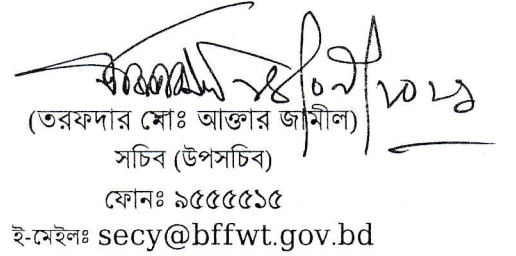 (তরফদার মোঃ আক্তার জামীল)
সচিব (উপসচিব)
ফোনঃ ৯৫৫৫৫১৫
ই-মেইলঃ secy@bffwt.gov.bd